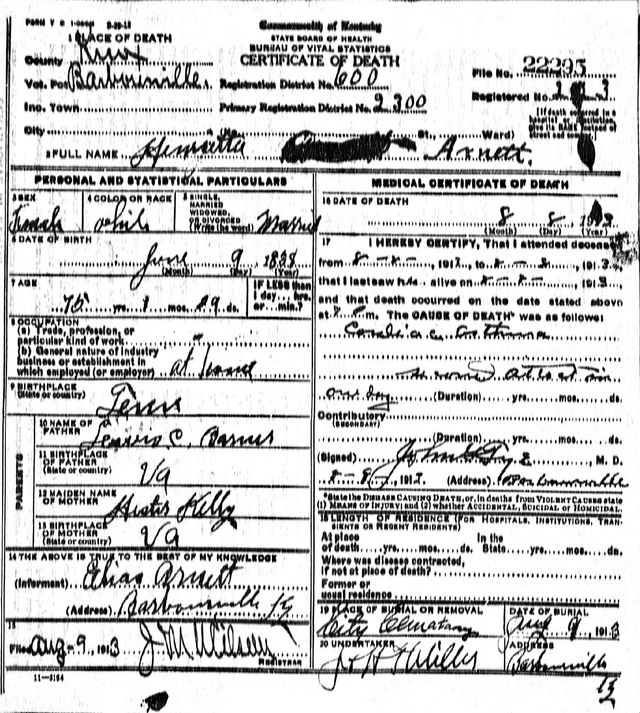 FORM V S 1-
Commonwealth of Kentucky
STATE BOARD OF HEALTH
BUREAU OF VITAL STATISTICS
CERTIFICATE OF DEATH
1 PLACE OF DEATH
County Knox
Vot. Pct Barbourville
Inc. Town
City
Registration District No. 600
Primary Registration District No. 2300
File No. 22295
Registered No.
(No. St., Ward)
[If death occurred in a hospital or institution, give its NAME instead of street and number.]
2 FULL NAME Henrietta Arnett.
PERSONAL AND STATISTICAL PARTICULARS
3 SEX Female
4 COLOR OR RACE white
5 SINGLE, MARRIED WIDOWED, OR DIVORCED (Write the word) Married
6 DATE OF BIRTH
June 9 1838
(Month) (Day) (Year)
7 AGE
75 yrs. 1 mos. 29 ds.
IF LESS than 1 day... hrs. or... min.?
8 OCCUPATION
(a) Trade, profession, or particular kind of work
(b) General nature of industry business or establishment in which employed (or employer) at home
9 BIRTHPLACE
(State or country) Tenn
PARENTS
10 NAME OF FATHER C. Barnes
11 BIRTHPLACE OF FATHER
(State or country) Va
12 MAIDEN NAME OF MOTHER Hester Kelly
13 BIRTHPLACE OF MOTHER
(State or country) Va
14 THE ABOVE IS TRUE TO THE BEST OF MY KNOWLEDGE
(Informant) Elias Arnett
(Address) Barbourville Ky
15
Filed Aug-9, 1913 J M Wilson
REGISTRAR
11-3184
MEDICAL CERTIFICATE OF DEATH
16 DATE OF DEATH
8 8 1913
(Month) (Day) (Year)
17 I HEREBY CERTIFY, That I attended deceased
from 8-8-, 1913, to 8-8, 1913,
that I last saw h alive on 8-8-, 1913
and that death occurred on the date stated above
at m. The CAUSE OF DEATH* was as follows:
Cardiac asthma
one day (Duration) yrs. mos. ds.
Contributory
(SECONDARY)
(Duration) yrs. mos. ds.
(Signed) M. D.
8-8, 191 (Address) Barbourville
*State the DISEASE CAUSING DEATH, or, in deaths from VIOLENT CAUSES state
(1) MEANS OF INJURY; and (2) whether ACCIDENTAL, SUICIDAL or HOMICIDAL.
18 LENGTH OF RESIDENCE (FOR HOSPITALS, INSTITUTIONS, TRANSIENTS OR RECENT RESIDENTS)
At place of death yrs. mos. ds. In the State yrs. mos. ds.
Where was disease contracted,
if not at place of death?
Former or
usual residence
19 PLACE OF BURIAL OR REMOVAL
City Cemetary
DATE OF BURIAL
Aug 9, 1913
20 UNDERTAKER
Miller
ADDRESS
Barbourville
13